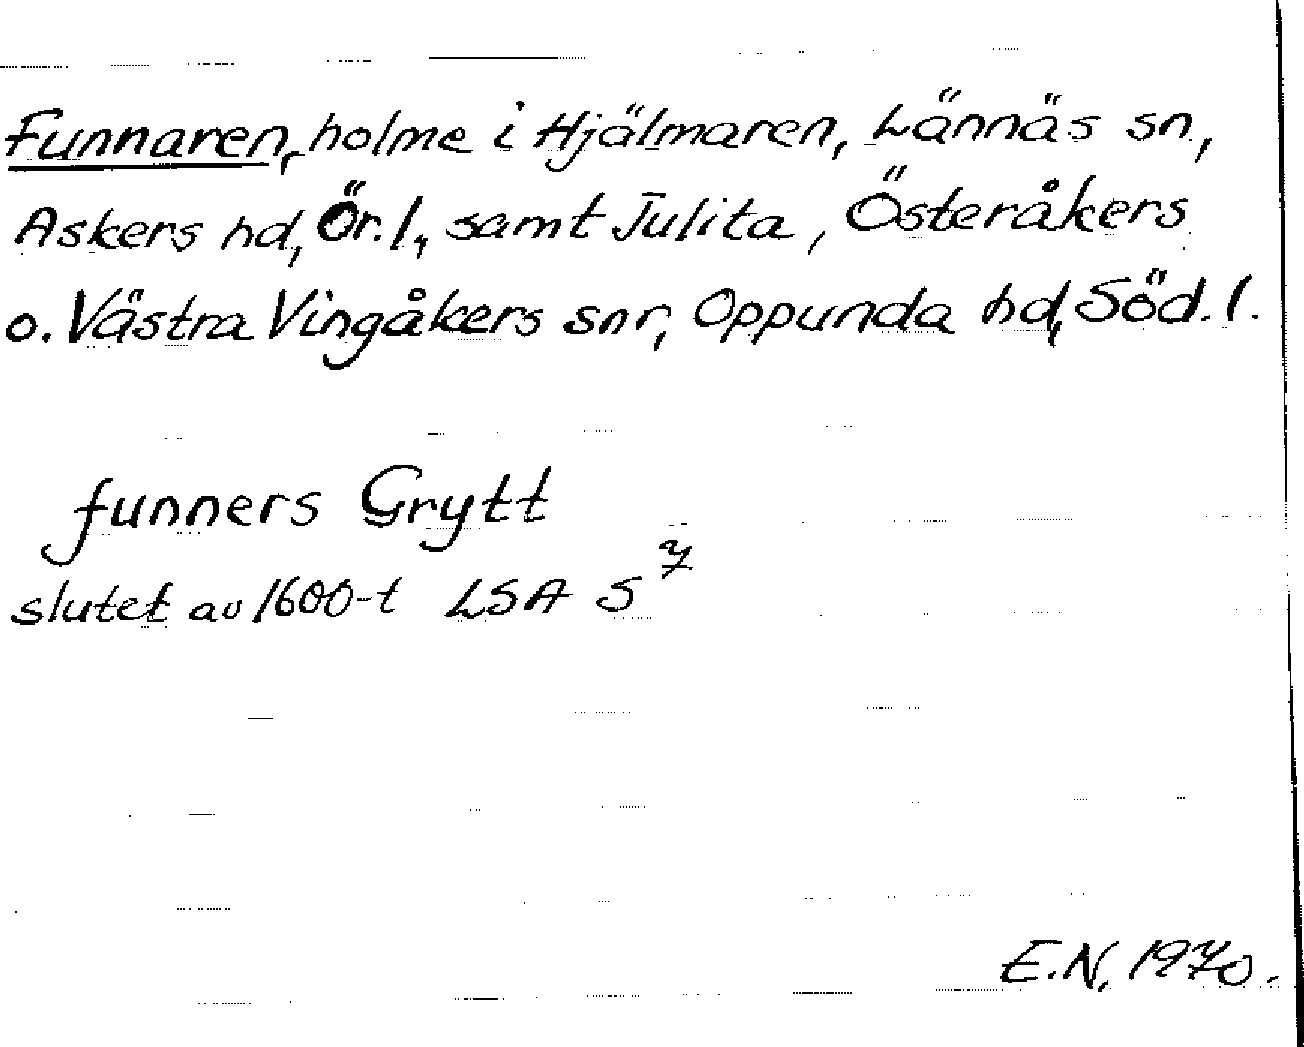 Funnaren, holme i Hjälmaren, Lännäs sn,
Askers hd, Ör. l, samt Julita, Österåkers
o. Västra Vingåkers snr, Oppunda hd, Söd. l.
funners Grytt
slutet av 1600-t LSA S 7
E.N. 1970.